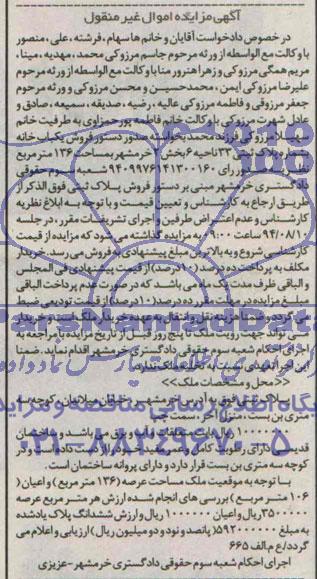 آگهی مزایده اموال غیر منقول
در خصوص دادخواست آقایان و خانم ها سهام، فرشته، علی، منصور
با وکالت مع الواسطه از ورثه مرحوم جاسم مرزوکی محمد، مهدیه، مینا،
مریم همگی مرزوکی و زهرا هنرور منا با وکالت مع الواسطه از ورثه مرحوم
علیرضا مرزوکی ایمن، محمدحسین و محسن مرزوکی و ورثه مرحوم
جعفر مرزوقی و فاطمه مرزوکی عالیه، رضیه، صدیقه، سمیعه، صادق و
عادل شهرت مرزوکی با وکالت خانم فاطمه پورحمزاوی به طرفیت خانم
سهیلا مرزوکی فرزند محمد بخواسته صدور دستور فروش یکباب خانه
پلاک ثبتی ۳۳ ناحیه ۶ بخش خرمشهر بمساحت ۱۳۶ متر مربع
رای ۹۴۰۹۹۷۶۱۴۱۳۰۰۱۶۰ شعبه سوم حقوقی
دادگستری خرمشهر مبنی بر دستور فروش پلاک ثبتی فوق الذکر از
طریق ارجاع به کارشناس و تعیین قیمت و با توجه به ابلاغ نظریه
کارشناس و عدم اعتراض طرفین و اجرای تشریفات مقرر، در جلسه
۹۴/۰۸/۱۰ ساعت ۰۹:۰۰ به مزایده گذاشته می شود که مزایده از قیمت
کارشناسی شروع و به بالاترین مبلغ پیشنهادی به فروش می رسد. خریدار
مکلف به پرداخت ده درصد (۱۰درصد) از قیمت پیشنهادی فی المجلس
و الباقی ظرف مدت یک ماه می باشد که در صورت عدم پرداخت الباقی
مبلغ مزایده در مهلت مقرر ده درصد (۱۰درصد) از قیمت تودیعی ضبط
می گردد و ضمنا هزینه نقل و انتقال به عهده خریدار ملک است و خریدار
می تواند جهت رویت ملک تا پنج روز قبل از تاریخ مزایده با مراجعه به
اجرای احکام شعبه سوم حقوقی دادگستری خرمشهر اقدام نماید. ضمنا
این اجرا تعهدی نسبت به تخلیه ملک ندارد.
<<محل و مشخصات ملک>>
پلاک ثبتی فوق به آدرس خرمشهر ـ خیابان میلانیان ـ کوچه سه
متری بن بست، منزل آخر، سمت چپ
می باشد و ساختمان
قدیمی دارای رطوبت کامل و عمر مفید خود را از دست داده است و در
کوچه سه متری بن بست قرار دارد و دارای پروانه ساختمان است.
با توجه به موقعیت ملک مساحت عرصه (۱۳۶ متر مربع) و اعیان (
۱۰۶ متر مربع) بررسی های انجام شده ارزش هر متر مربع عرصه
۳۵۰۰۰۰۰ ریال و اعیان ۱۰۰۰۰۰۰ ریال و ارزش ششدانگ پلاک یادشده
به مبلغ ۵۹۲۰۰۰۰۰۰ (پانصد و نود و دو میلیون ریال) ارزیابی و اعلام می
گردد/ع م الف ۶۶۵
اجرای احکام شعبه سوم حقوقی دادگستری خرمشهر - عزیزی
ParsNamadData
۰۲۱-۸۸۳۴۹۶۷۰-۵